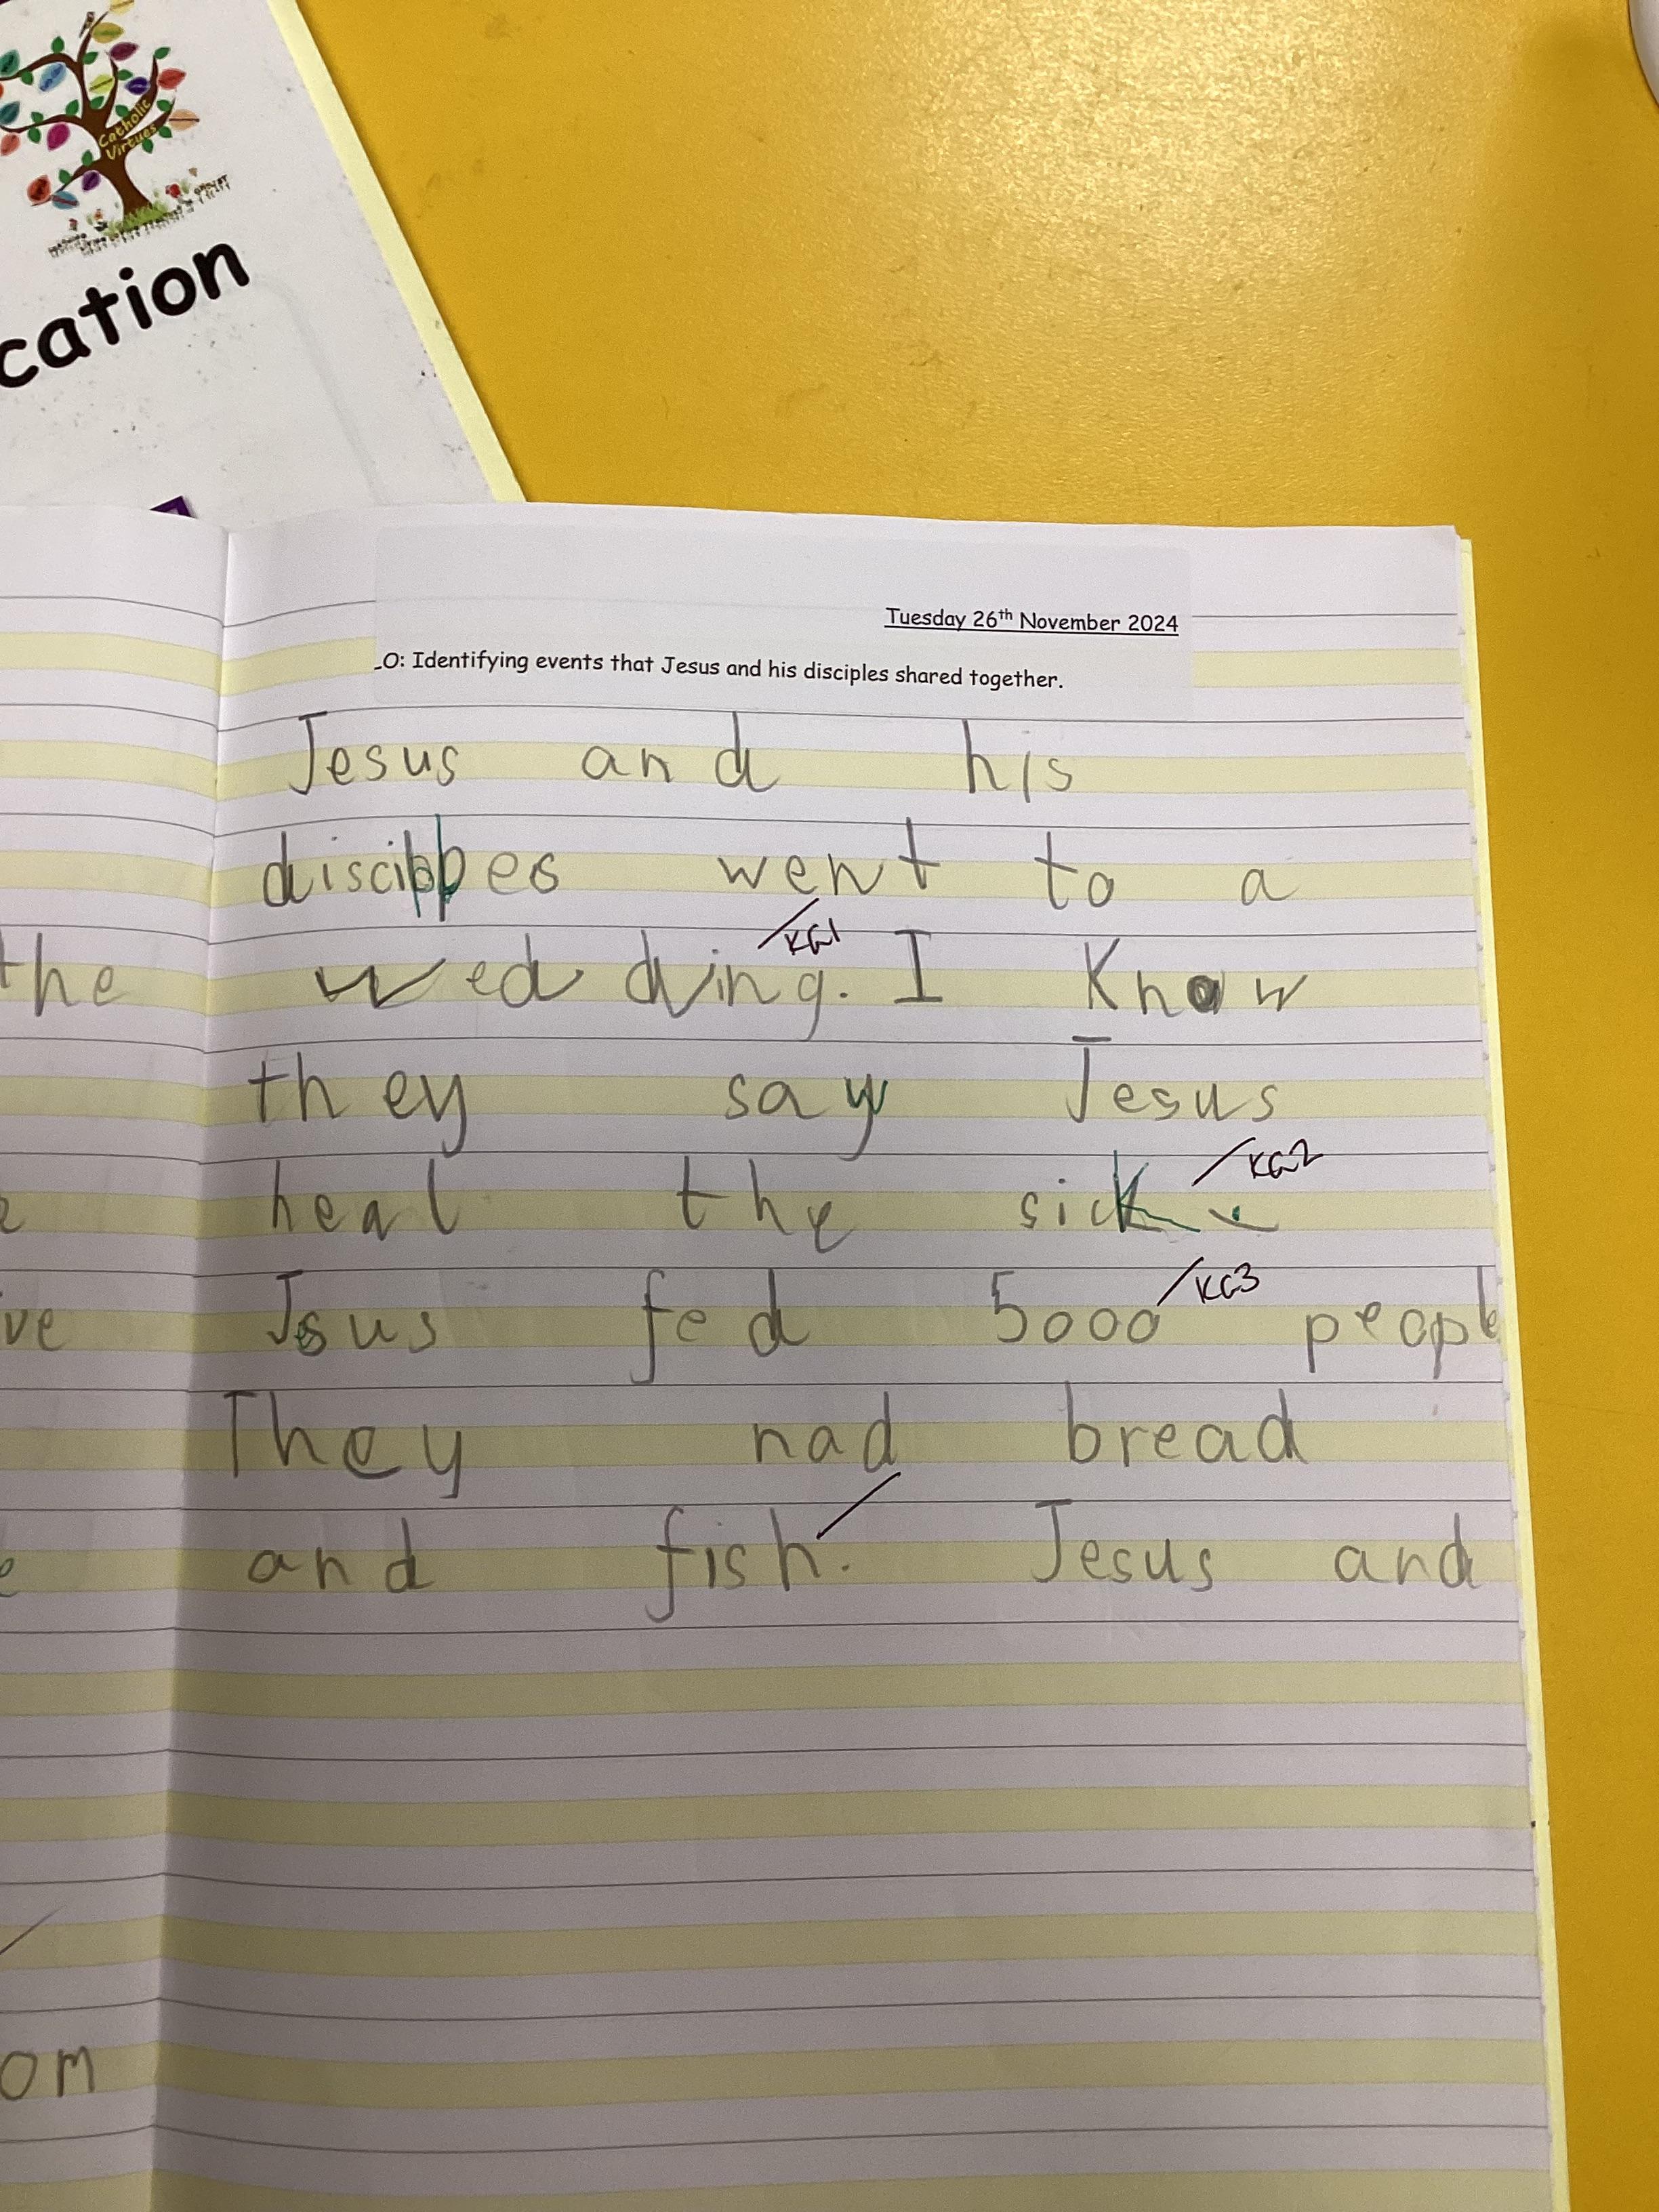 Catholic
Virtues
cation
Tuesday 26th November 2024
LO: Identifying events that Jesus and his disciples shared together.
Jesus and his
discippes went to a
KG1
the
wedding. I Know
they say Jesus
KG2
heal the sick.
KG3
ve
Jesus fed 5000 people
They had bread
and fish. Jesus and
om